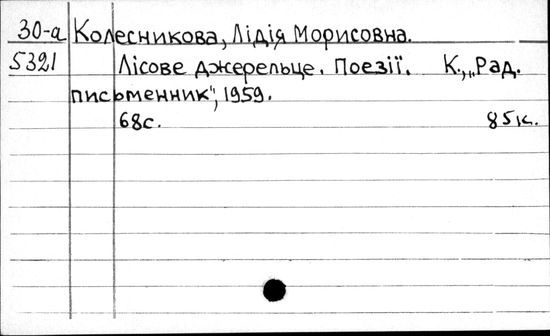 30-а Колесникова, Лідія Морисовна.
5321 Лісове джерельце. Поезії. К., „Рад.
письменник", 1959.
68с. 85к.